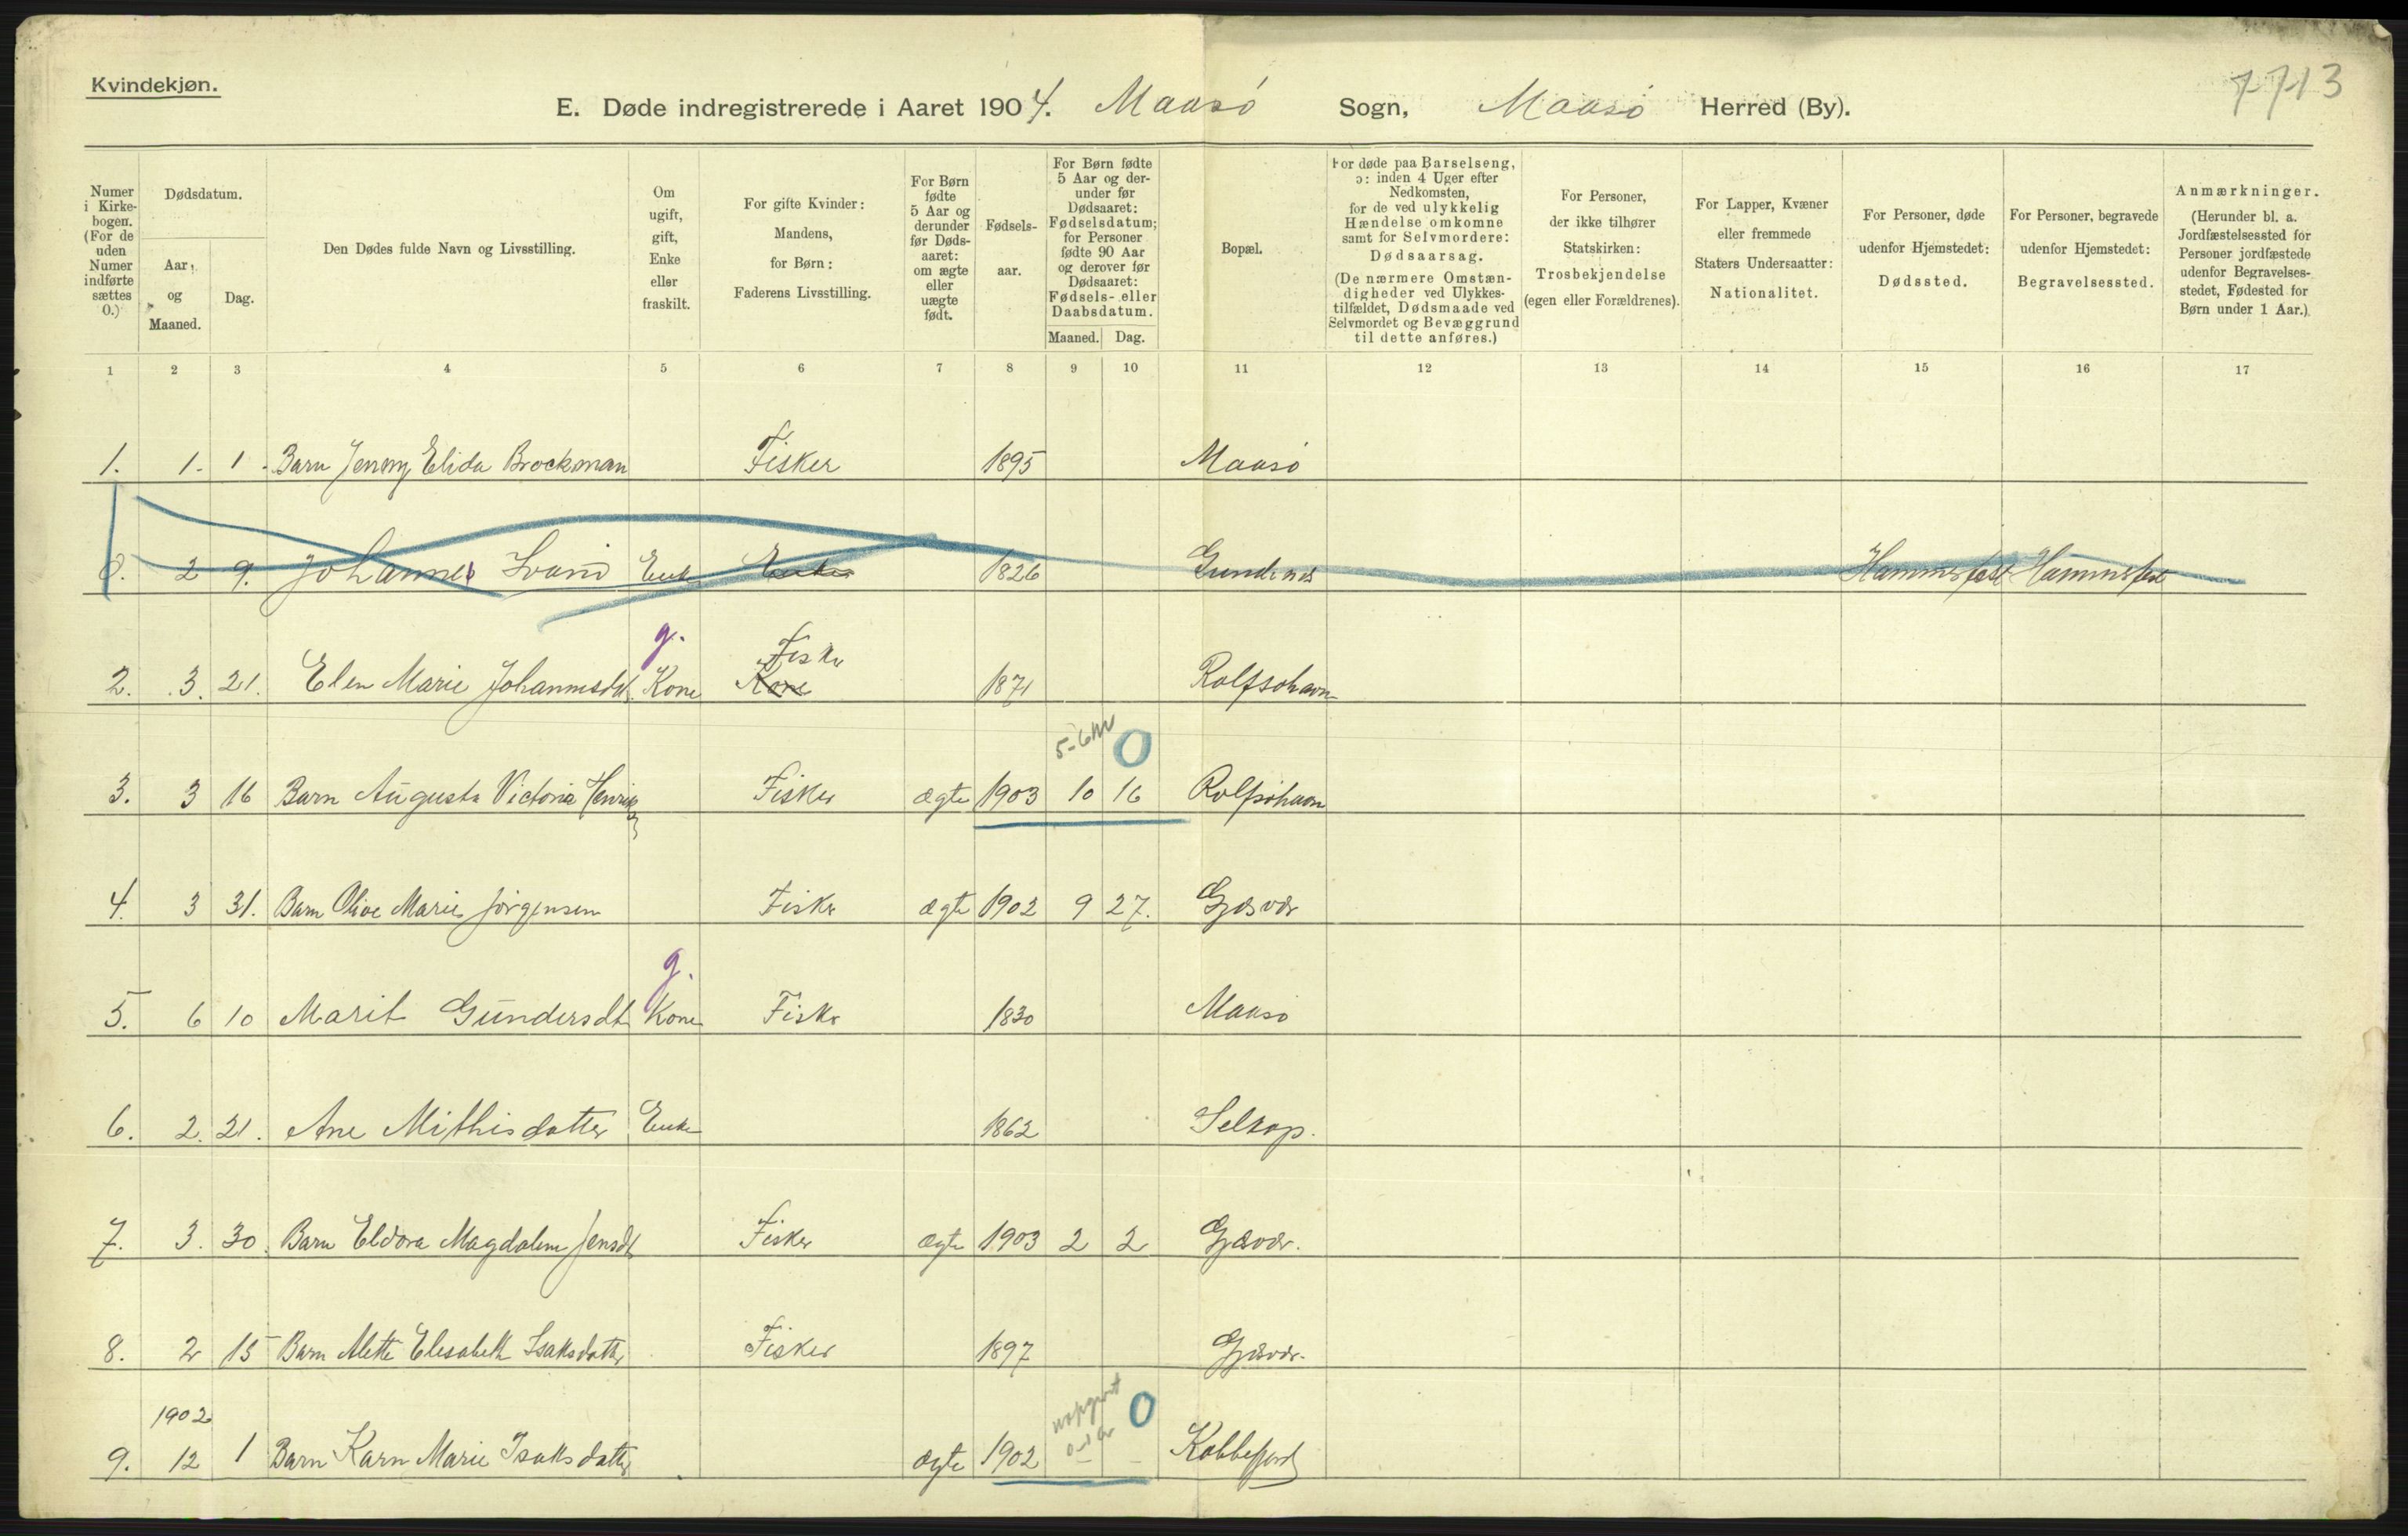 Kvindekjøn.
7713
E. Døde indregistrerede i Aaret 1904. Maasø Sogn, Maasø Herred (By).
Numer i Kirkebogen. (For de uden Numer indførte sættes 0.)
Dødsdatum.
Aar og Maaned.
Dag.
Den Dødes fulde Navn og Livsstilling.
Om ugift, gift, Enke eller fraskilt.
For gifte Kvinder: Mandens, for Børn: Faderens Livsstilling.
For Børn fødte 5 Aar og derunder før Dødsaaret: om ægte eller uægte født.
Fødselsaar.
For Børn fødte 5 Aar og derunder før Dødsaaret: Fødselsdatum; for Personer fødte 90 Aar og derover før Dødsaaret: Fødsels- eller Daabsdatum.
Maaned. Dag.
Bopæl.
For døde paa Barselseng, ɔ: inden 4 Uger efter Nedkomsten, for de ved ulykkelig Hændelse omkomne samt for Selvmordere: Dødsaarsag. (De nærmere Omstændigheder ved Ulykkestilfældet, Dødsmaade ved Selvmordet og Bevæggrund til dette anføres.)
For Personer, der ikke tilhører Statskirken: Trosbekjendelse (egen eller Forældrenes).
For Lapper, Kvæner eller fremmede Staters Undersaatter: Nationalitet.
For Personer, døde udenfor Hjemstedet: Dødssted.
For Personer, begravede udenfor Hjemstedet: Begravelsessted.
Anmærkninger. (Herunder bl. a. Jordfæstelsessted for Personer jordfæstede udenfor Begravelsesstedet, Fødested for Børn under 1 Aar.)
1 2 3 4 5 6 7 8 9 10 11 12 13 14 15 16 17
1. 1. 1. Barn Jenny Elida Brockman Fisker 1895 Maasø
0. 2 9. Johannes Enke Enke 1826 Hammerfest Hammerfest
g. Fisker
2. 3. 21. Elen Marie Johannesdt. Kone Kone 1871 Rolfsøhavn
5-6 M 0
3. 3 16 Barn Augusta Victoria Henriksen Fisker ægte 1903 10 16 Rolfsøhavn
4. 3 31. Barn Olive Marie Jørgensen Fisker ægte 1902 9 27. Gjesvær
g.
5. 6 10 Marit Gundersdt Kone Fisker 1830 Maasø
6. 2. 21. Ane Mithisdatter Enke 1862 Selkop.
7. 3. 30. Barn Eldora Magdalene Jensdt Fisker ægte 1903 2 2 Gjesvær.
8. 2 15 Barn Alette Elisabeth Isaksdatter Fisker 1897 Gjesvær.
1902 uopgivet 0
9. 12 1 Barn Karn Marie Isaksdatter ægte 1902 – – Kobbefjord